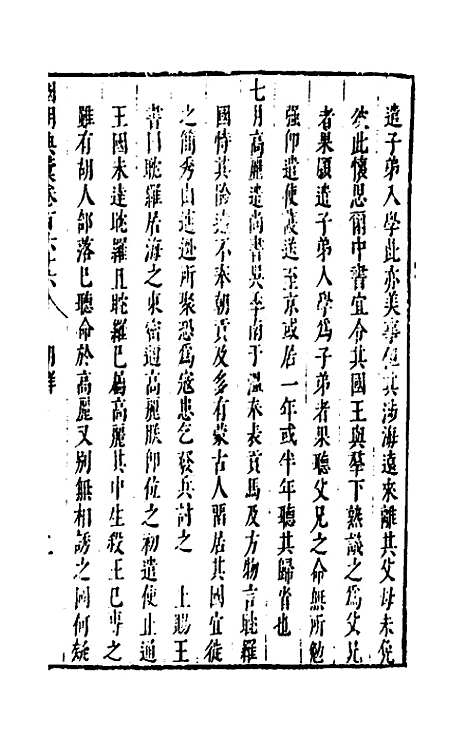 遣子弟入學此亦美事但其涉海遠來離其父母未免
彼此懷思爾中書宜令其國王與羣下熟議之爲父兄
者果願遣子弟入學爲子弟者果聽父兄之命無所勉
強卽遣使護送至京或居一年或半年聽其歸省也
七月高麗遣尚書吳季南于溫奉表貢馬及方物言耽羅
國恃其險遠不奉朝貢及多有蒙古人畱居其國宜徙
之簡秀山逋逃所聚恐爲寇患乞發兵討之 上賜王
書曰耽羅居海之東密邇高麗朕卽位之初遣使止通
王國未達耽羅且耽羅已屬高麗其中生殺王已專之
雖有胡人部落已聽命於高麗又別無相誘之國何疑
國朝典彙卷百六十六 朝鮮